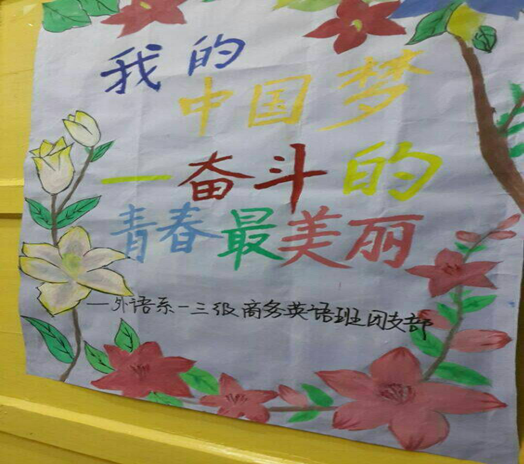 我的
中国梦
一奋斗的
青春最美丽
—外语系一三级商务英语班团支部